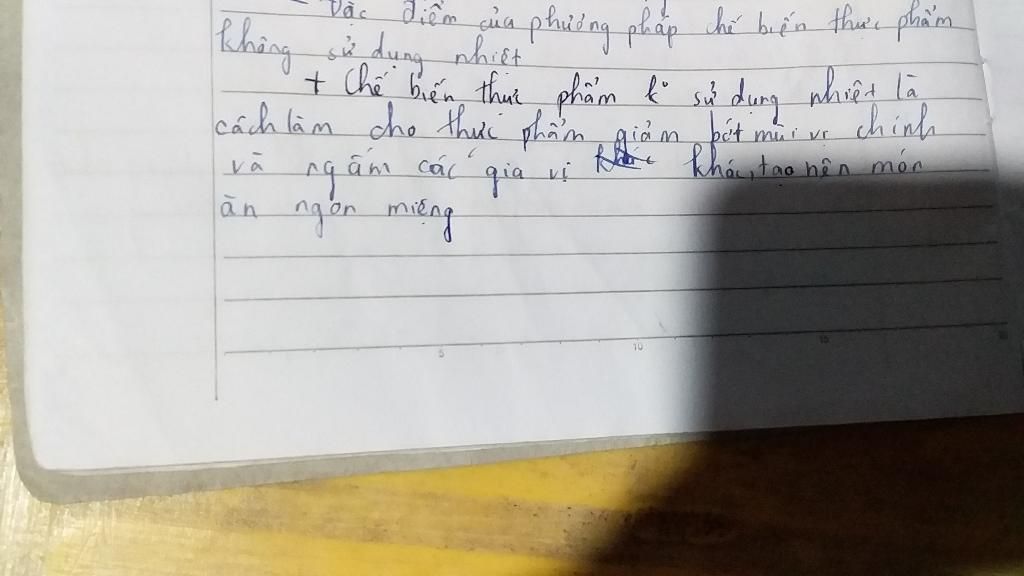 - Đặc điểm của phương pháp chế biến thực phẩm
không sử dụng nhiệt
+ Chế biến thực phẩm k° sử dụng nhiệt là
cách làm cho thực phẩm giảm bớt mùi vị chính
và ngấm các gia vị khác, tạo nên món
ăn ngon miệng
5 10 15